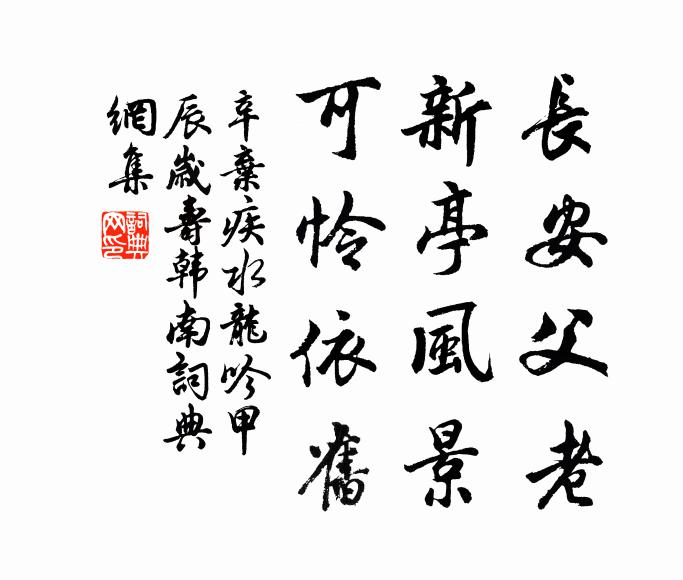 長安父老
新亭風景
可怜依舊
辛棄疾水龍吟甲
辰歲壽韩南詞典
網集
詞典網印